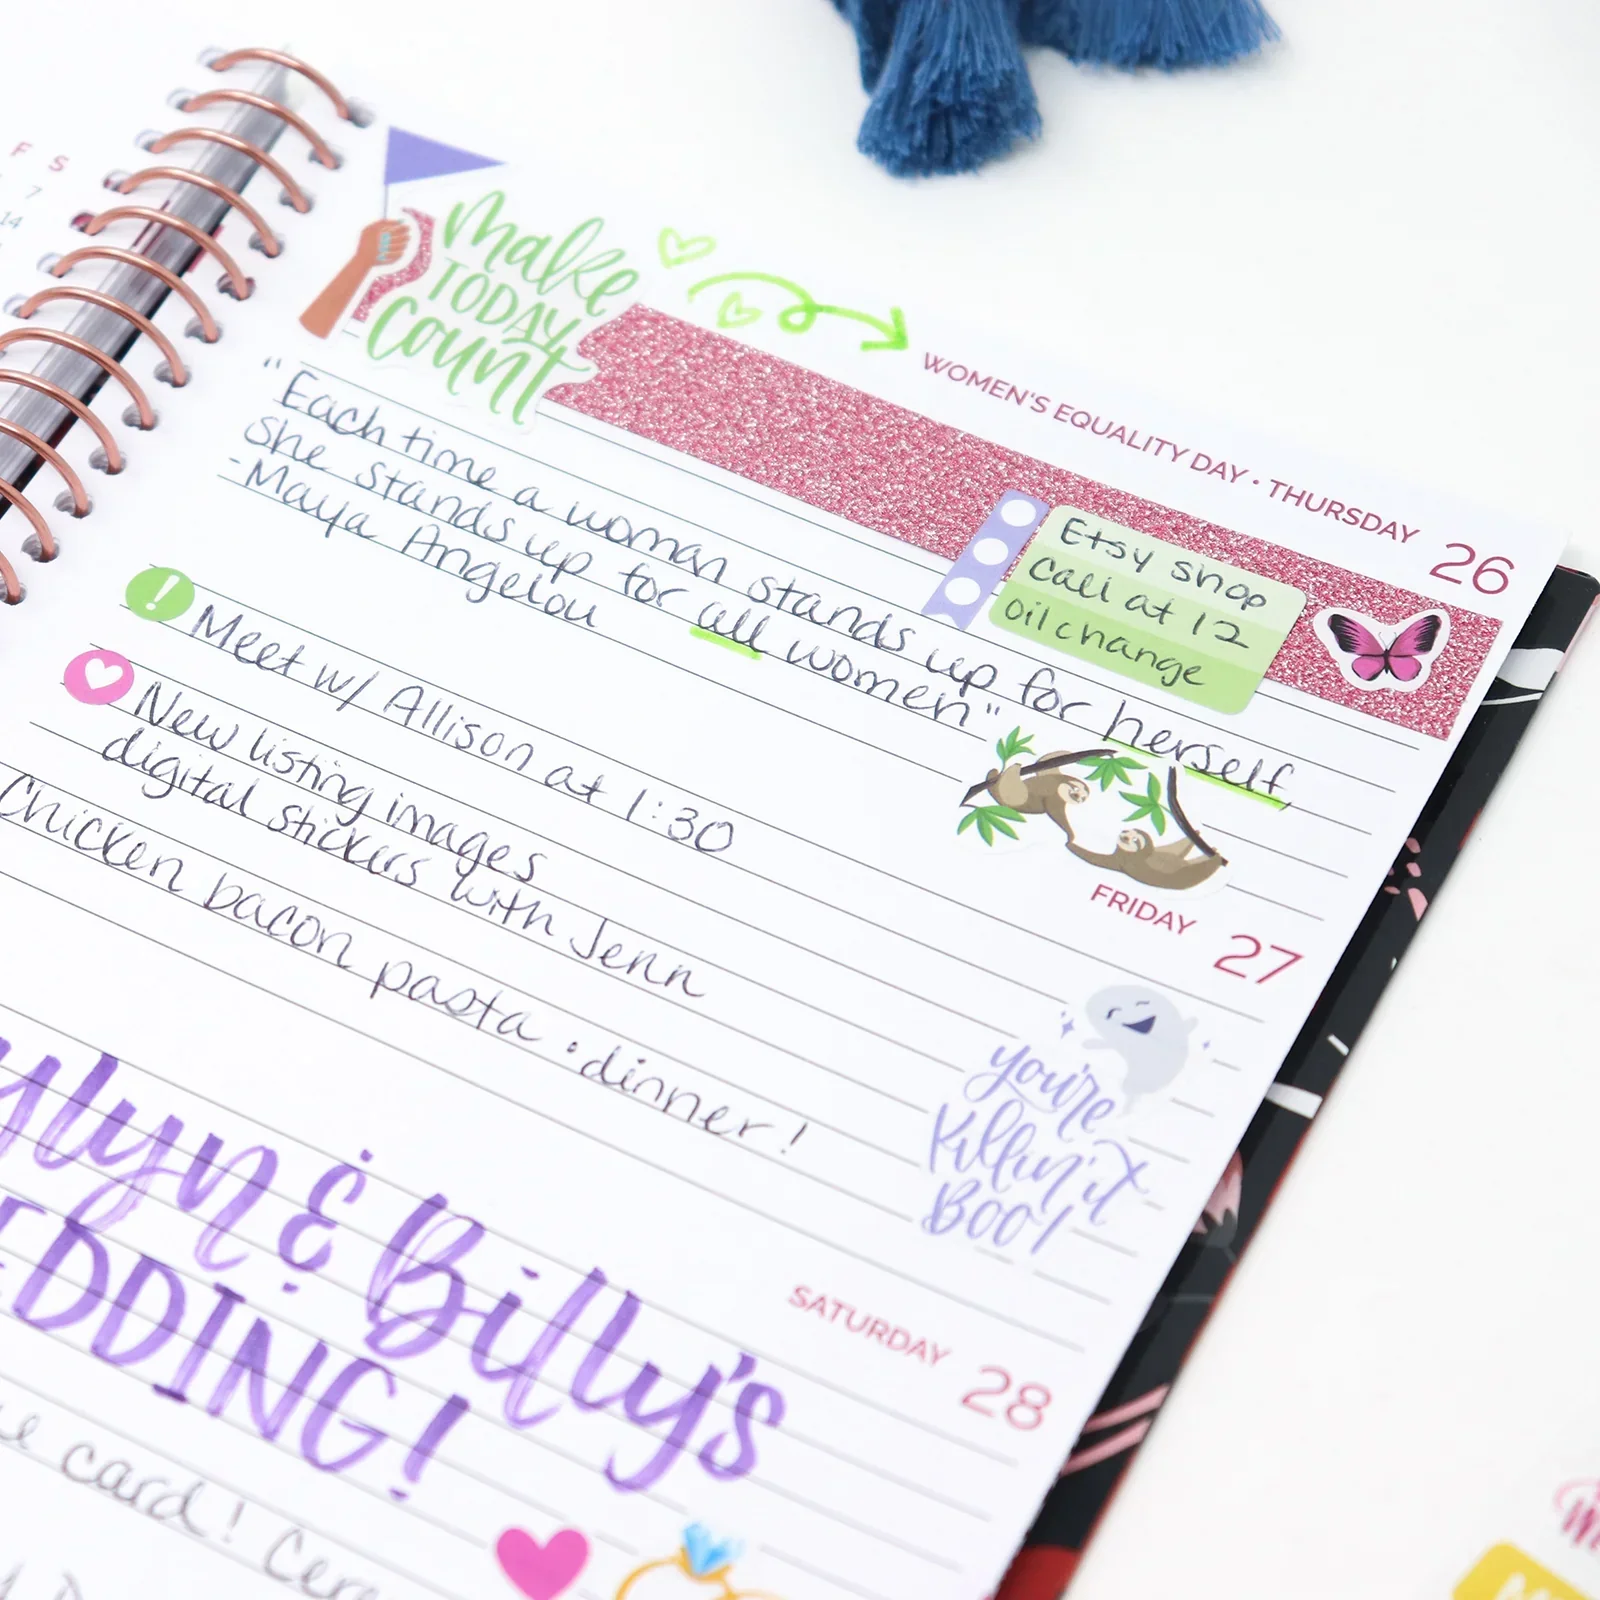 F S
7
14
make
TODAY
count
WOMEN'S EQUALITY DAY • THURSDAY 26
Etsy shop
Call at 12
oil change
"Each time a woman stands up for herself,
she stands up for all women"
-Maya Angelou
!
Meet w/ Allison at 1:30
FRIDAY 27
New listing images
digital stickers with Jenn
Chicken bacon pasta • dinner!
you're
Killin' it
BOO!
SATURDAY 28
& Billy's
card!